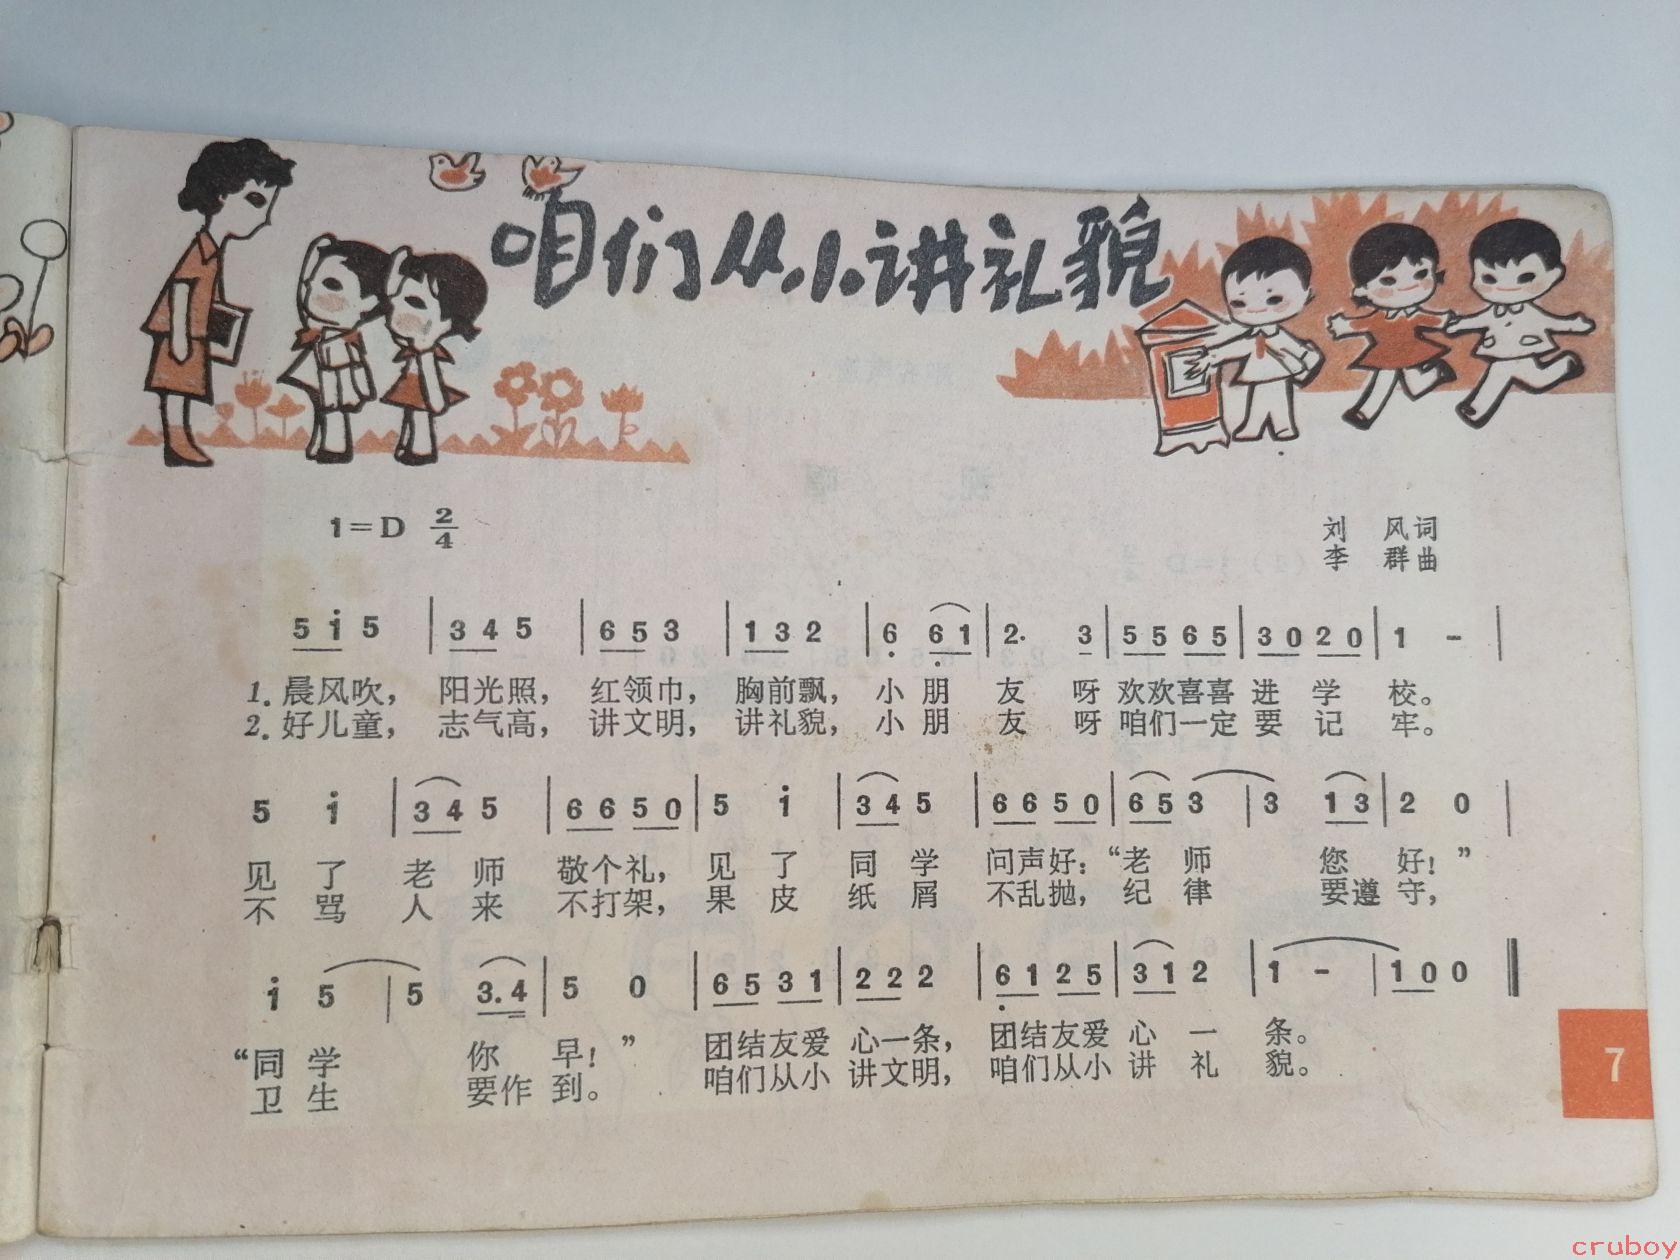 咱们从小讲礼貌
1=D 2/4
刘 风词
李 群曲
5 i 5 | 3 4 5 | 6 5 3 | 1 3 2 | 6 6 1 | 2. 3 | 5 5 6 5 | 3 0 2 0 | 1 - |
1. 晨风吹， 阳光照， 红领巾， 胸前飘， 小 朋 友 呀 欢欢喜喜 进 学 校。
2. 好儿童， 志气高， 讲文明， 讲礼貌， 小 朋 友 呀 咱们一定 要 记 牢。
5 i | 3 4 5 | 6 6 5 0 | 5 i | 3 4 5 | 6 6 5 0 | 6 5 3 | 3 1 3 | 2 0 |
见 了 老 师 敬个礼， 见 了 同 学 问声好：“老 师 您 好！”
不 骂 人 来 不打架， 果 皮 纸 屑 不乱抛， 纪 律 要遵 守，
i 5 | 5 3. 4 | 5 0 | 6 5 3 1 | 2 2 2 | 6 1 2 5 | 3 1 2 | 1 - | 1 0 0 ‖
“同 学 你 早！” 团结友爱 心一条， 团结友爱 心 一 条。
卫 生 要作 到。 咱们从小 讲文明， 咱们从小 讲 礼 貌。
7
cruboy